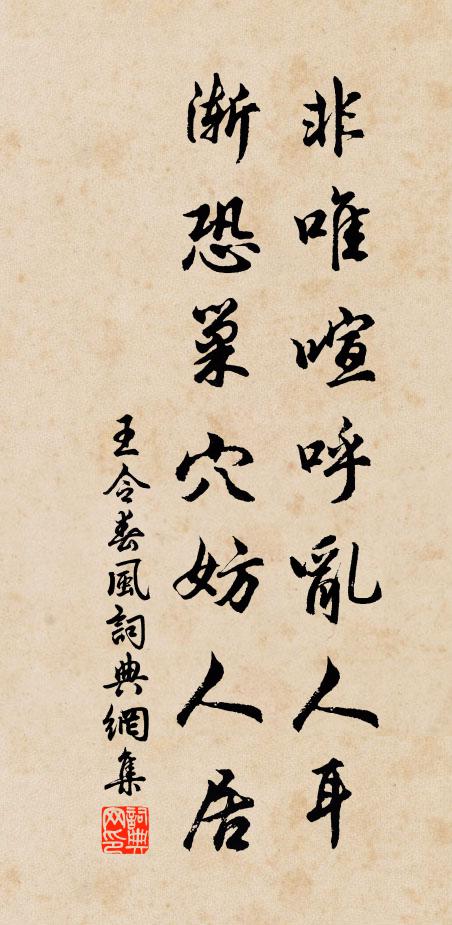 非唯喧呼亂人耳
漸恐巢穴妨人居
王令春風詞典網集
詞典網印